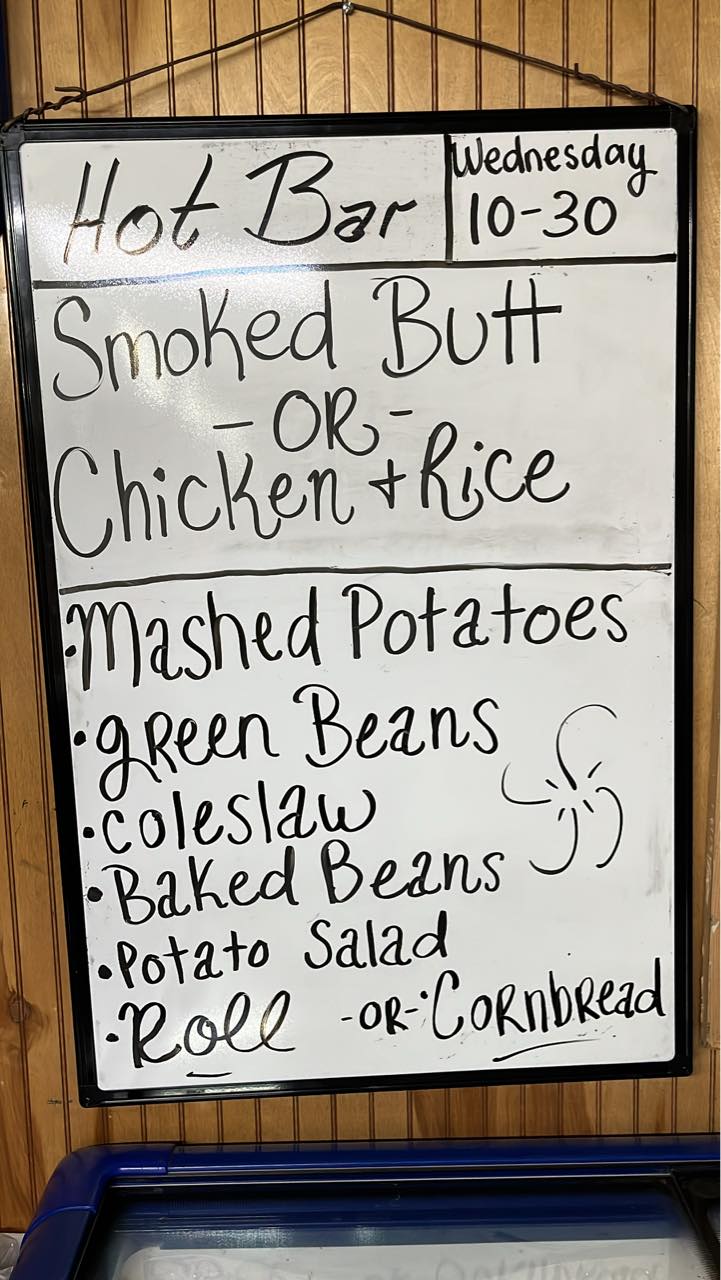 Hot Bar
Wednesday
10-30
Smoked Butt
-OR-
Chicken + Rice
• Mashed Potatoes
• green Beans
• coleslaw
• Baked Beans
• Potato Salad
• Roll -OR- • Cornbread